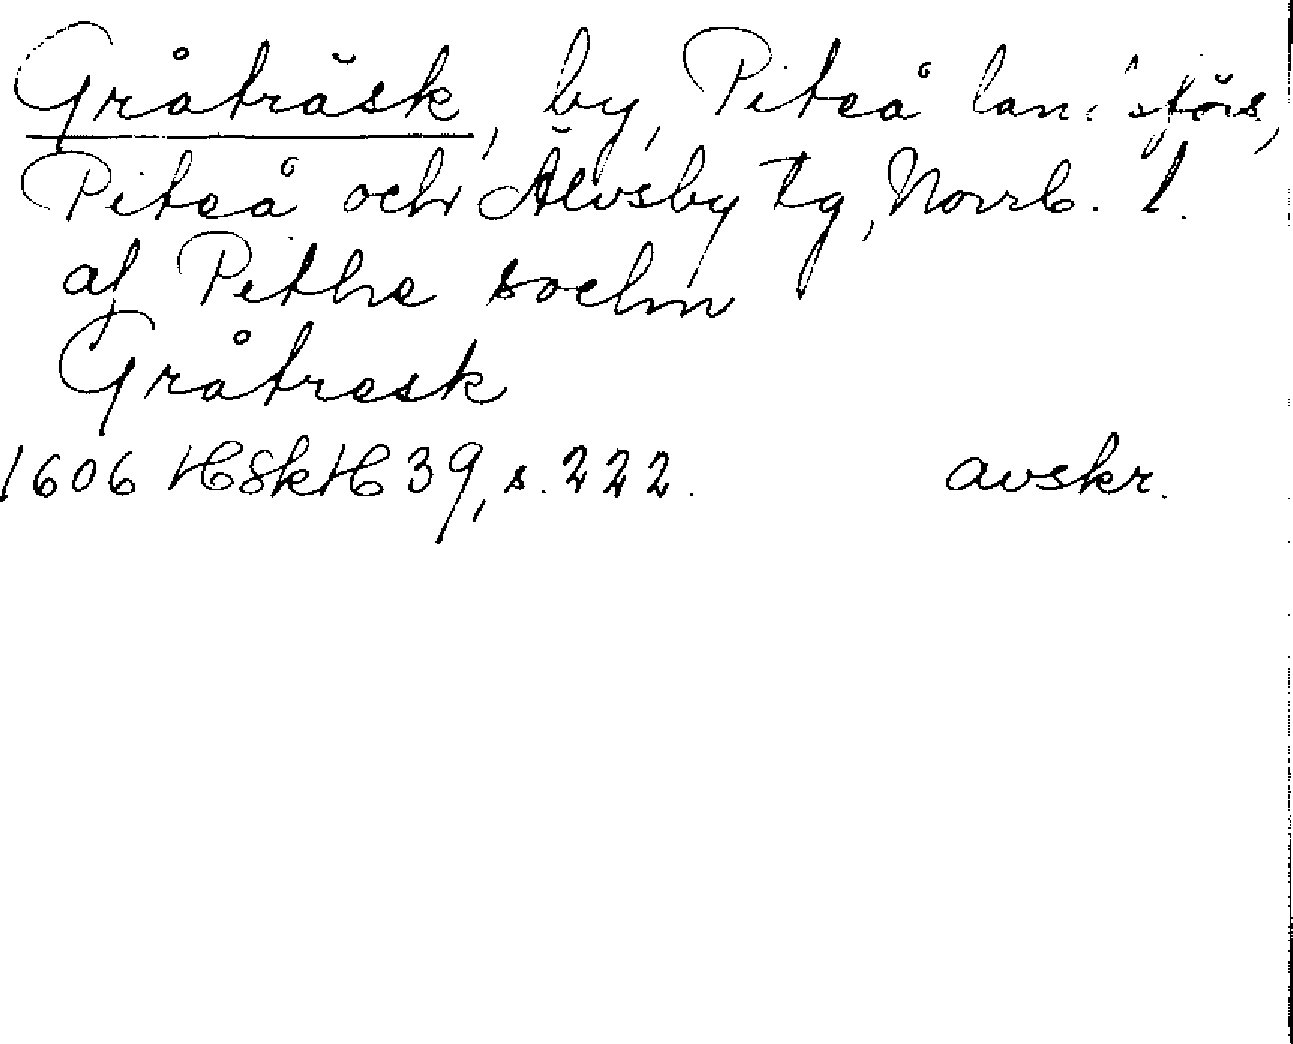 Gråträsk, by, Piteå landsförs,
Piteå och Älvsby tg, Norrb. l.
af Pithe sochn
Gråtresk
1606 HSkH 39, s. 222. avskr.